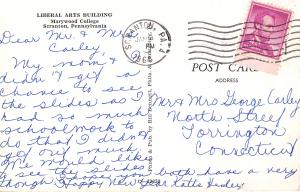 LIBERAL ARTS BUILDING
Marywood College
Scranton, Pennsylvania
SCRANTON, PA
PM
Dear Mr & Mrs
Carley,
My mom &
didn't get a
chance to see
the slides as I
had so much
schoolwork to
do that I didn't
get out much.
We would like
to see the slides
though. Happy New Year
both have a very
POST CARD
ADDRESS
Mr & Mrs George Carley
North Street
Torrington
Connecticut